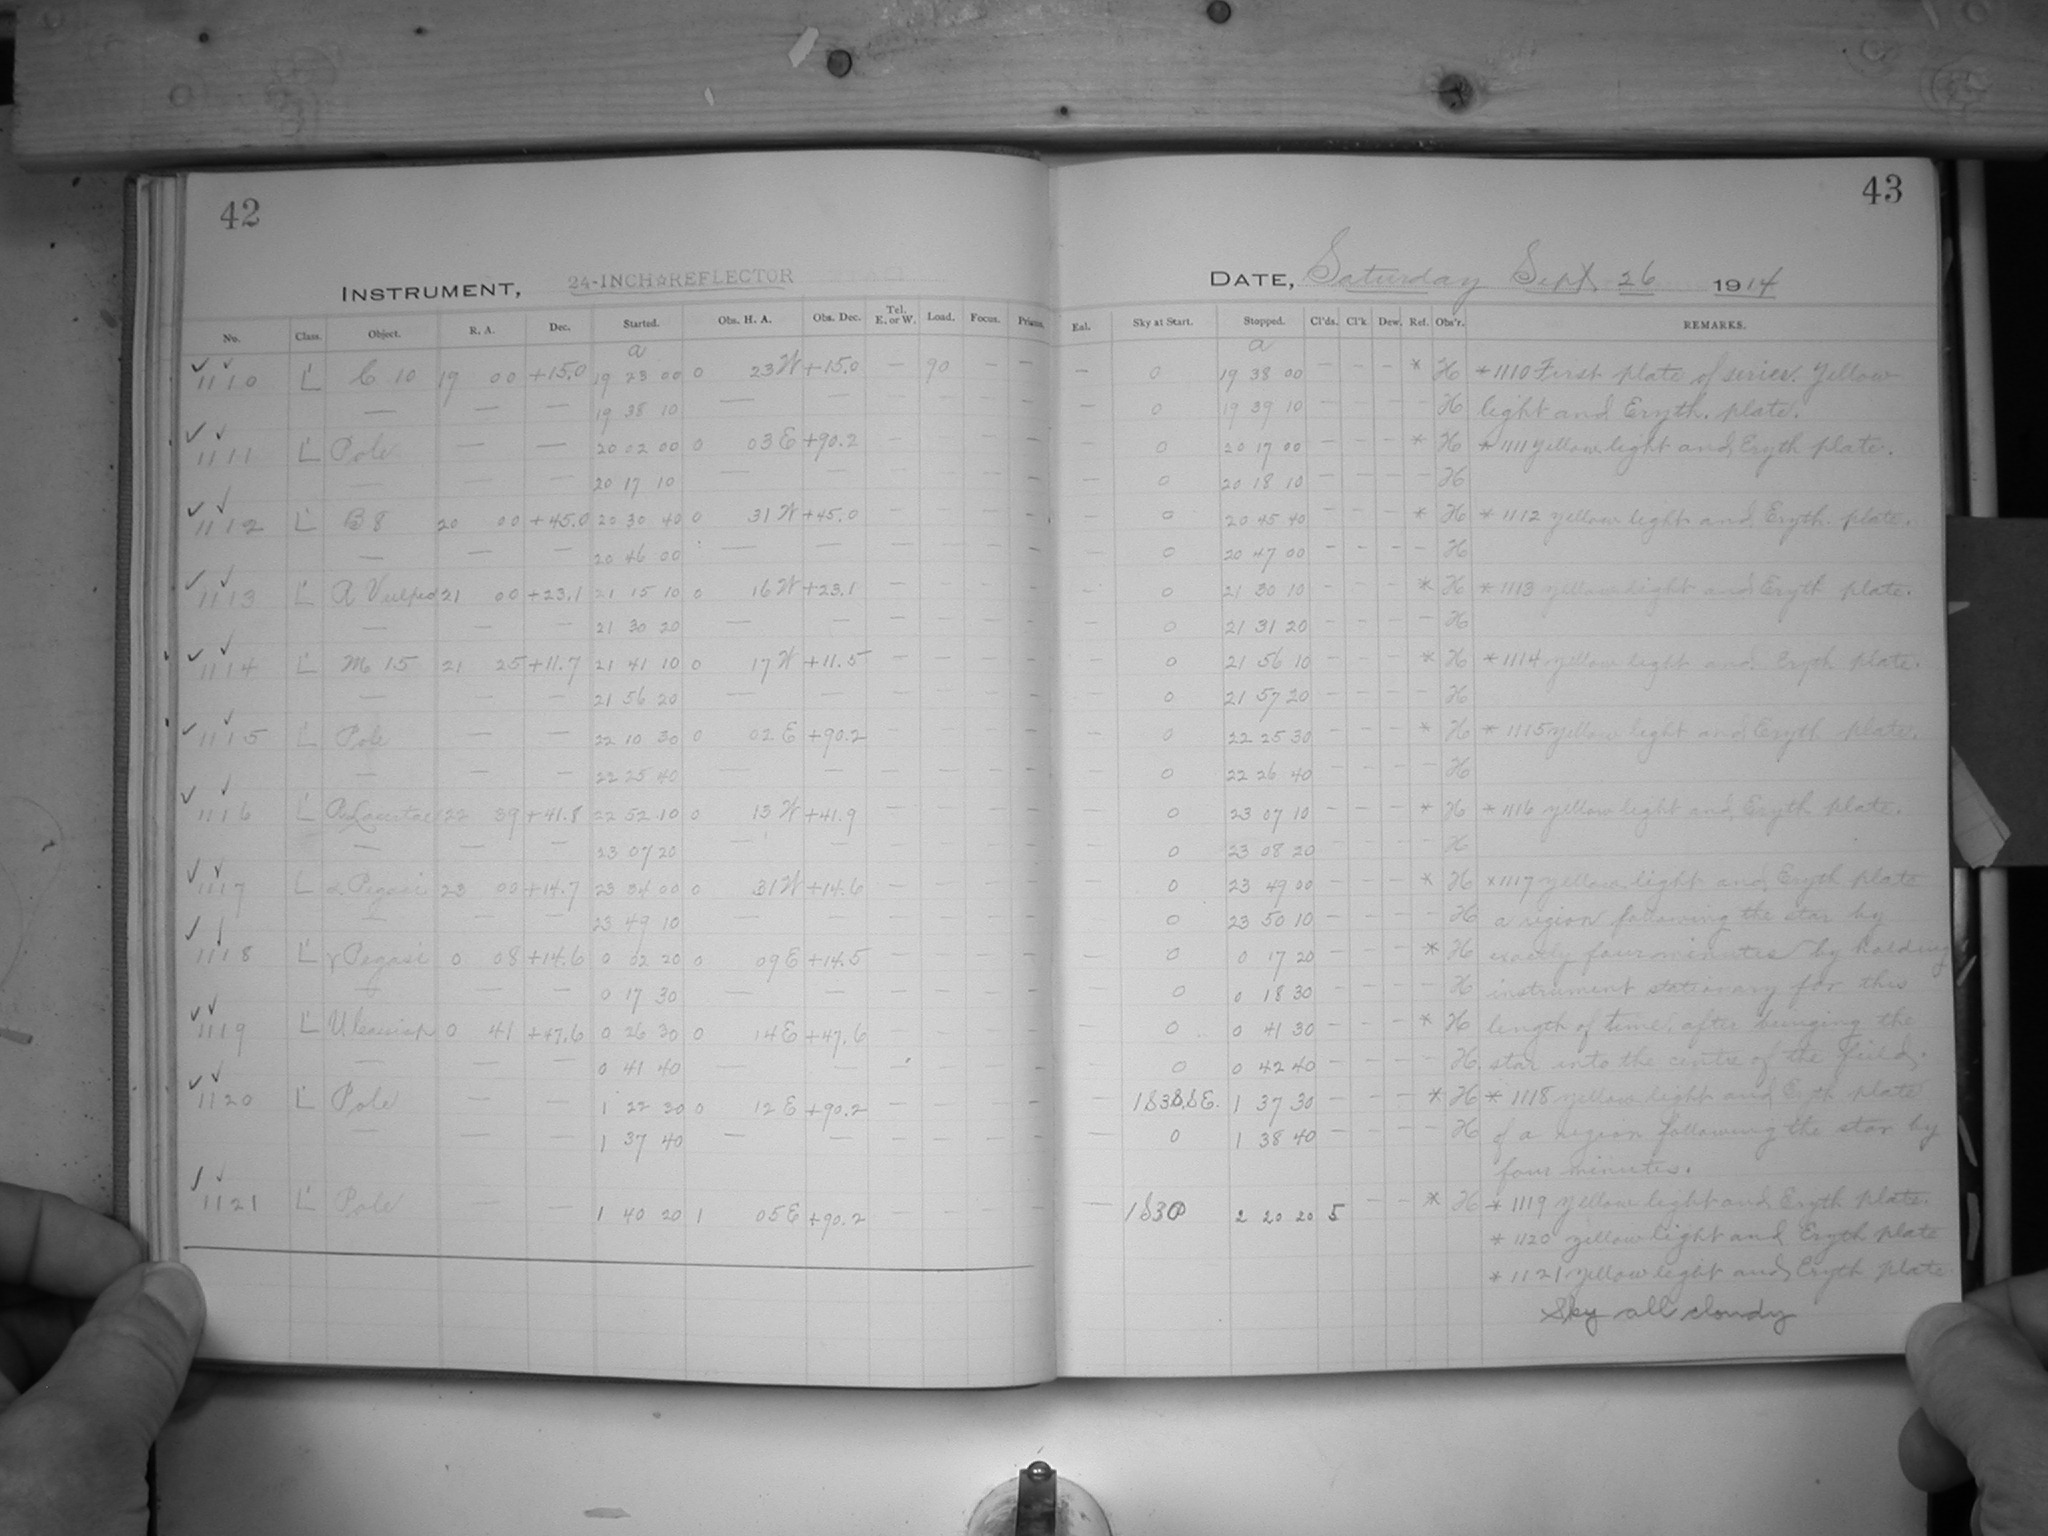 42
INSTRUMENT, 24-INCH☆REFLECTOR
No. Class. Object. R. A. Dec. Started. Obs. H. A. Obs. Dec. Tel. E. or W. Load. Focus. Prisms.
a
1110 L' C 10 19 00 +15.0 19 23 00 0 23 W +15.0 — 90 — —
— — — 19 38 10 — — — — — —
1111 L' Pole — — 20 02 00 0 03 E +90.2 — — — —
— — — 20 17 10 — — — — — —
1112 L' B 8 20 00 +45.0 20 30 40 0 31 W +45.0 — — — —
— — — 20 46 00 — — — — — —
1113 L' R Vulpec 21 00 +23.1 21 15 10 0 16 W +23.1 — — — —
— — — 21 30 20 — — — — — —
1114 L' M 15 21 25 +11.7 21 41 10 0 17 W +11.5 — — — —
— — — 21 56 20 — — — — — —
1115 L' Pole — — 22 10 30 0 02 E +90.2 — — — —
— — — 22 25 40 — — — — — —
1116 L' 22 39 +41.8 22 52 10 0 13 W +41.9 — — — —
— — — 23 07 20 — — — — — —
1117 L' α Pegasi 23 00 +14.7 23 34 00 0 31 W +14.6 — — — —
— — — 23 49 10 — — — — — —
1118 L' γ Pegasi 0 08 +14.6 0 02 20 0 09 E +14.5 — — — —
— — — 0 17 30 — — — — — —
1119 L' U Cassiop 0 41 +47.6 0 26 30 0 14 E +47.6 — — — —
— — — 0 41 40 — — — — — —
1120 L' Pole — — 1 22 30 0 12 E +90.2 — — — —
— — — 1 37 40 — — — — — —
1121 L' Pole — — 1 40 20 1 05 E +90.2 — — — —
43
DATE, Saturday Sept 26 1914
Eal. Sky at Start. Stopped. Cl'ds. Cl'k. Dew. Ref. Obs'r. REMARKS.
a
— 0 19 38 00 — — — * H *1110 First plate of series. Yellow
— 0 19 39 10 — — — — H light and Eryth. plate.
— 0 20 17 00 — — — * H *1111 yellow light and Eryth plate.
— 0 20 18 10 — — — — H
— 0 20 45 40 — — — * H *1112 yellow light and Eryth. plate.
— 0 20 47 00 — — — — H
— 0 21 30 10 — — — * H *1113 yellow light and Eryth plate.
— 0 21 31 20 — — — — H
— 0 21 56 10 — — — * H *1114 yellow light and Eryth plate.
— 0 21 57 20 — — — — H
— 0 22 25 30 — — — * H *1115 yellow light and Eryth plate.
— 0 22 26 40 — — — — H
— 0 23 07 10 — — — * H *1116 yellow light and Eryth plate.
— 0 23 08 20 — — — — H
— 0 23 49 00 — — — * H *1117 yellow light and Eryth plate
— 0 23 50 10 — — — — H a region following the star by
— 0 0 17 20 — — — * H exactly four minutes by holding
— 0 0 18 30 — — — — H instrument stationary for this
— 0 0 41 30 — — — * H length of time, after bringing the
— 0 0 42 40 — — — — H star into the centre of the field.
— 1 37 30 — — — * H *1118 yellow light and Eryth plate
— 0 1 38 40 — — — — H of a region following the star by
four minutes.
— 2 20 20 5 — — * H *1119 yellow light and Eryth plate.
*1120 yellow light and Eryth plate
*1121 yellow light and Eryth plate
Sky all cloudy